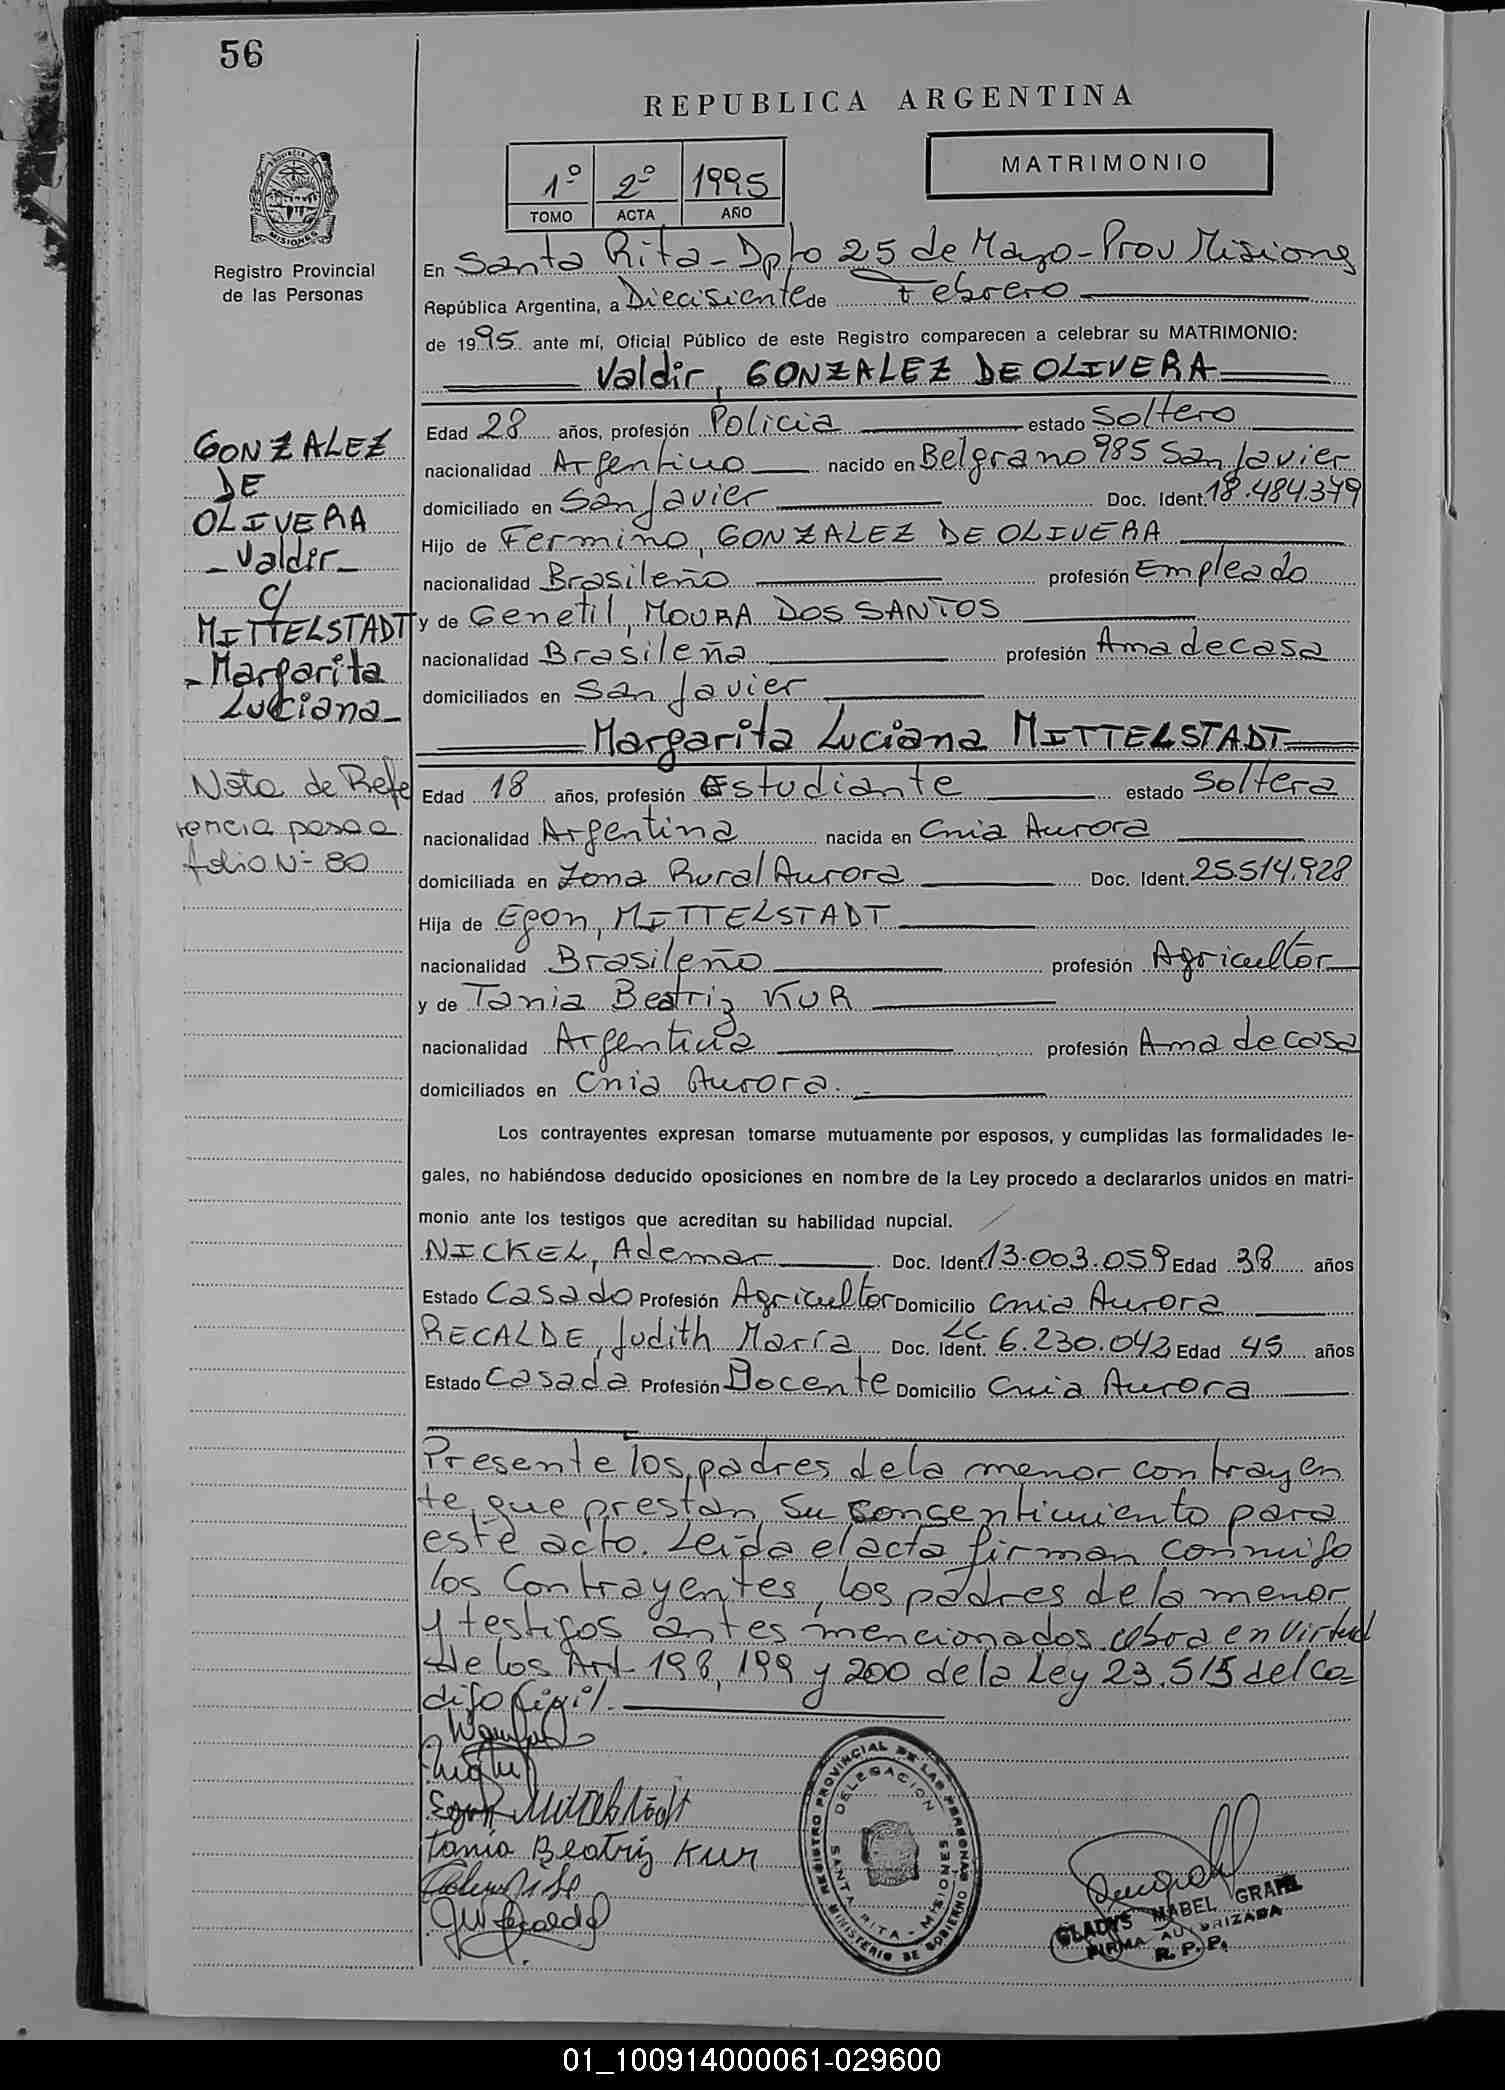 56
REPUBLICA ARGENTINA
MATRIMONIO
1º 2º 1995
TOMO ACTA AÑO
PROVINCIA DE
MISIONES
Registro Provincial
de las Personas
En Santa Rita - Dpto 25 de Mayo - Prov Misiones
República Argentina, a Diecisiente de Febrero
de 1995 ante mí, Oficial Público de este Registro comparecen a celebrar su MATRIMONIO:
Valdir, GONZALEZ DE OLIVERA
Edad 28 años, profesión Policia estado Soltero
nacionalidad Argentino nacido en Belgrano 985 San Javier
domiciliado en San Javier Doc. Ident. 18.484.379
Hijo de Fermino, GONZALEZ DE OLIVERA
nacionalidad Brasileño profesión Empleado
y de Genetil, MOURA DOS SANTOS
nacionalidad Brasileña profesión Ama de casa
domiciliados en San Javier
Margarita Luciana MITTELSTADT
Edad 18 años, profesión Estudiante estado Soltera
nacionalidad Argentina nacida en Cnia Aurora
domiciliada en Zona Rural Aurora Doc. Ident. 25.514.928
Hija de Egon, MITTELSTADT
nacionalidad Brasileño profesión Agricultor
y de Tania Beatriz KUR
nacionalidad Argentina profesión Ama de casa
domiciliados en Cnia Aurora.
Los contrayentes expresan tomarse mutuamente por esposos, y cumplidas las formalidades le-
gales, no habiéndose deducido oposiciones en nombre de la Ley procedo a declararlos unidos en matri-
monio ante los testigos que acreditan su habilidad nupcial.
NICKEL, Ademar Doc. Ident. 13.003.059 Edad 38 años
Estado Casado Profesión Agricultor Domicilio Cnia Aurora
RECALDE, Judith María Doc. Ident. LC. 6.230.042 Edad 45 años
Estado Casada Profesión Docente Domicilio Cnia Aurora
Presente los padres de la menor contrayen
te, que prestan su consentimiento para
este acto. Leída el acta firman conmigo
los Contrayentes, los padres de la menor
y testigos antes mencionados. obra en virtud
de los Art 198, 199 y 200 de la Ley 23.515 del Co
digo Civil.
GONZALEZ
DE
OLIVERA
- Valdir -
c/
MITTELSTADT
- Margarita
Luciana -
Nota de Refe
rencia pasa a
folio Nº 80
Egon Mittelstadt
Tania Beatriz Kur
REGISTRO PROVINCIAL DE LAS PERSONAS
DELEGACION
SANTA RITA - MISIONES
MINISTERIO DE GOBIERNO
GLADYS MABEL GRAHL
FIRMA AUTORIZADA
R. P. P.
01_100914000061-029600